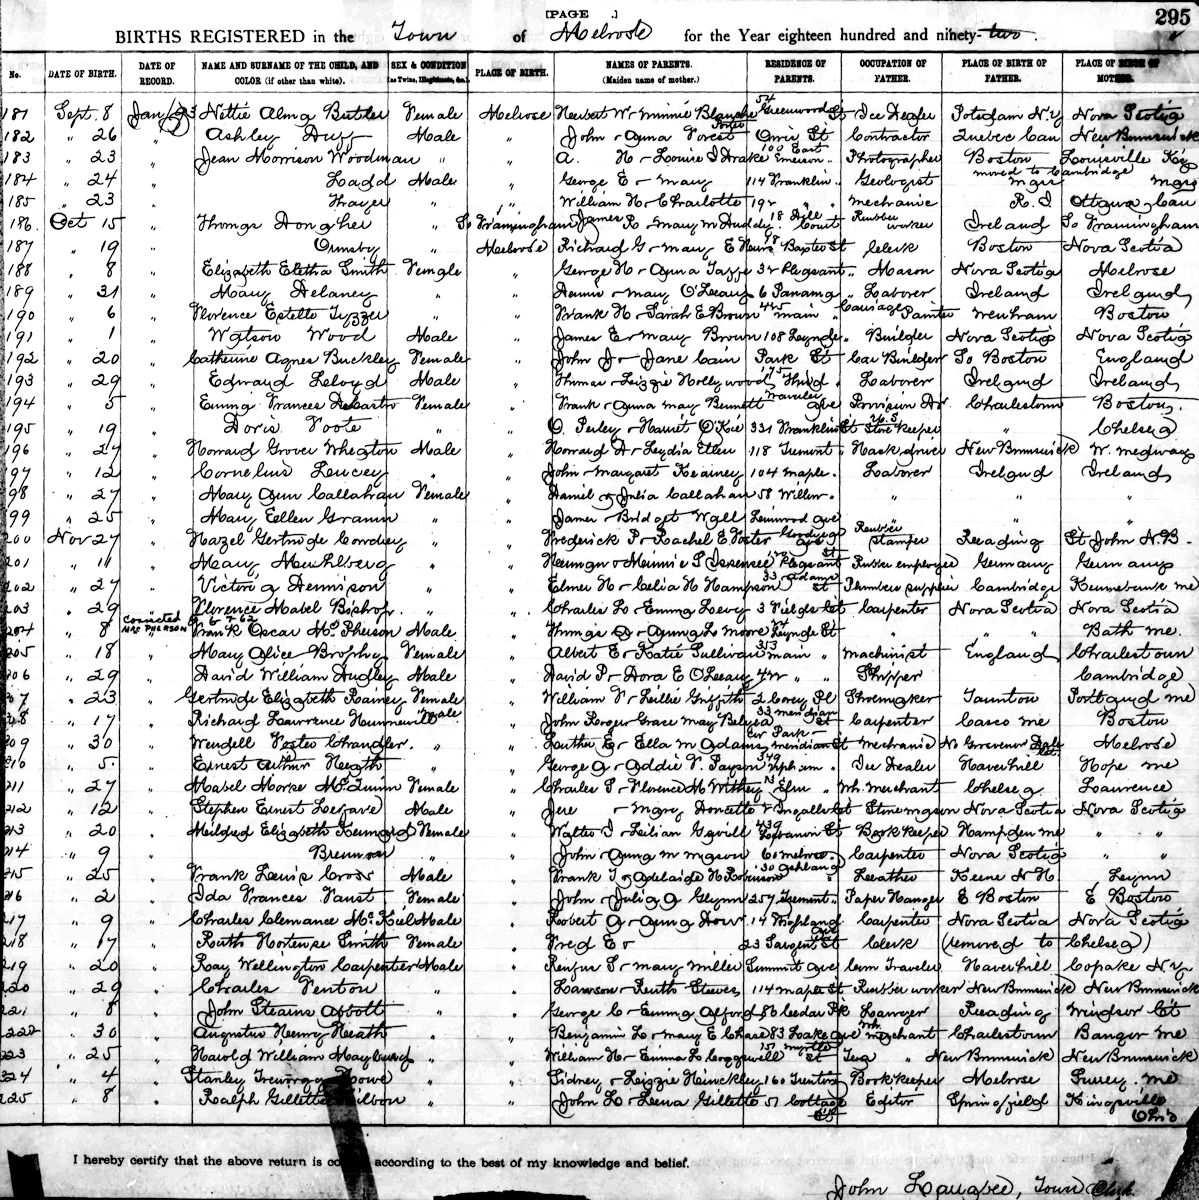 [PAGE .] 295
BIRTHS REGISTERED in the Town of Melrose for the Year eighteen hundred and ninety-two.
No. DATE OF BIRTH. DATE OF RECORD. NAME AND SURNAME OF THE CHILD, AND COLOR (if other than white). SEX & CONDITION (as Twins, Illegitimate, &c.) PLACE OF BIRTH. NAMES OF PARENTS. (Maiden name of mother.) RESIDENCE OF PARENTS. OCCUPATION OF FATHER. PLACE OF BIRTH OF FATHER. PLACE OF BIRTH OF MOTHER.
181 Sept. 8 Jan Nettie Alma Butler Female Melrose Herbert W - Minnie Blanche 54 Greenwood St Ice Dealer Potsdam N.Y Nova Scotia
182 " 26 " Ashley Duff Male " John - Anna Forest Orris St Contractor Quebec Can New Brunswick
183 " 23 " Jean Morrison Woodman " " A. H - Louise I Drake 100 East Emerson " Photographer Boston Louisville Ky
184 " 24 " Ladd Male " George E - Mary 114 Franklin " Geologist moved to Cambridge Mass Mass
185 " 23 " Thayer " " William H - Charlotte 192 " Mechanic R. I Ottawa Can
186 Oct 15 " Thomas Donagher " So Framingham James R - Mary M Huddy 18 Hill Court Rubber worker Ireland So Framingham
187 " 19 " Ormsby " Melrose Richard G - Mary E 18 Baxter St Clerk Boston Nova Scotia
188 " 8 " Elizabeth Eletha Smith Female " George H - Anna Jaffe 32 Pleasant " Mason Nova Scotia Melrose
189 " 31 " Mary Delaney " " Dennis - Mary O'Leary 6 Panama " Laborer Ireland Ireland
190 " 6 " Florence Estelle " " Frank H - Sarah E Brown 425 Main " Carriage Painter Wenham Boston
191 " 1 " Watson Wood Male " James E - Mary Brown 108 Lynde " Builder Nova Scotia Nova Scotia
192 " 20 " Catherine Agnes Buckley Female " John J - Jane Cain Park St Car Builder So Boston England
193 " 29 " Edward Leloyd Male " Thomas - Lizzie Hollywood 175 Third " Laborer Ireland Ireland
194 " 5 " Emma Frances Female " Frank - Anna May Bennett Waverley ave Provision Dr Charlestown Boston
195 " 19 " Doris Foote " " O. Perley - Harriet 331 Franklin St U.S Store keeper " Chelsea
196 " 27 " Howard Grover Wheaton Male " Howard A - Lydia Etter 118 Tremont " Hack driver New Brunswick W. Medway
197 " 12 " Cornelius Lucey " " John - Margaret Kearney 104 Maple " Laborer Ireland Ireland
98 " 27 " Mary Ann Callahan Female " Daniel - Julia Callahan 58 Willow " " " "
99 " 25 " Mary Ellen Grann " " James - Bridget Wall Linwood ave " " "
200 Nov 27 " Hazel Gertrude Cordrey " " Frederick P - Rachel E Foster Goodyear ave Rubber stamper Reading St John N.B.
201 " 11 " Mary Muhlberg " " Herman - Minnie S Pleasant St Rubber employee Germany Germany
202 " 27 " Victoria Dennison " " Elmer H - Celia H Hampson 33 Adams St Plumber supplies Cambridge Kennebunk me
203 " 29 " Florence Mabel Bishop " " Charles L - Emma Levy 3 Fields Ct Carpenter Nova Scotia Nova Scotia
Corrected MAC PHERSON 2-6-7-62
204 " 8 " Frank Oscar McPherson Male " Thomas A - Anna L Moore 24 Lynde St " " Bath me.
205 " 18 " Mary Alice Brophy Female " Albert E - Katie Sullivan 353 Main " Machinist England Charlestown
206 " 29 " David William Dudley Male " David P - Dora E O'Leary 42 " " Shipper " Cambridge
207 " 23 " Gertrude Elizabeth Rainey Female " William F - Lillie Griffith 2 Corey Pl Shoemaker Taunton Portland me
208 " 17 " Richard Lawrence Hunnewill Male " John Leroy - Grace May Belyea 33 Meridian St Carpenter Casco me Boston
209 " 30 " Wendell Foster Chandler " " Luther E - Ella M Adams Cor Park - Meridian St Mechanic No Grosvenor Dale Ct Melrose
210 " 5 " Ernest Arthur Heath " " George A - Addie F. Payson 349 Upham " Ice Dealer Haverhill Hope me
211 " 27 " Mabel Morse McQuinn Female " Charles S - Florence M Withey 13 Elm " Wh. merchant Chelsea Lawrence
212 " 12 " Stephen Ernest Legare Male " Jere - Mary Doucette 2 Ingalls Ct Stone mason Nova Scotia Nova Scotia
213 " 20 " Mildred Elizabeth Kennard Female " Walter I - Lilian Gavill 439 Lebanon St Book keeper Hampden me " "
214 " 9 " Brennan " " John - Anna M Mason 60 Melrose " Carpenter Nova Scotia " "
215 " 25 " Frank Lewis Cross Male " Frank T - Adelaide H Robinson 30 Ashland " Leather Keene N H Lynn
216 " 2 " Ida Frances Faust Female " John - Julia A Glynn 257 Tremont " Paper Hanger E Boston E Boston
217 " 9 " Charles Clemance McKiel Male " Robert A - Anna Dow 14 Highland ave Carpenter Nova Scotia Nova Scotia
218 " 17 " Ruth Hortense Smith Female " Fred E - 23 Sargent St Clerk (removed to Chelsea)
219 " 20 " Ray Wellington Carpenter Male " Rufus S - Mary Miller Summit ave Com Traveler Haverhill Copake N.Y
220 " 29 " Charles Fenton " " Lawson - Ruth Steeves 114 Maple St Rubber worker New Brunswick New Brunswick
221 " 8 " John Stearns Abbott " " George C - Emma Alford 86 Cedar Pk Lawyer Reading Windsor Ct
222 " 30 " Augustus Henry Heath " " Benjamin L - Mary E Chase 83 Lake ave Wh. merchant Charlestown Bangor me
223 " 25 " Harold William Mayberry " " William H - Emma L Coggswell 157 Myrtle St Tea " New Brunswick New Brunswick
224 " 4 " Stanley Treworgy Howe " " Sidney - Lizzie Hinckley 160 Trenton Book keeper Melrose Surrey. me
225 " 8 " Ralph Gillette Wilbon " " John L - Lena Gillette 51 Cottage St Editor Springfield Kingsville Ohio
I hereby certify that the above return is according to the best of my knowledge and belief.
John Larrabee Town Clerk